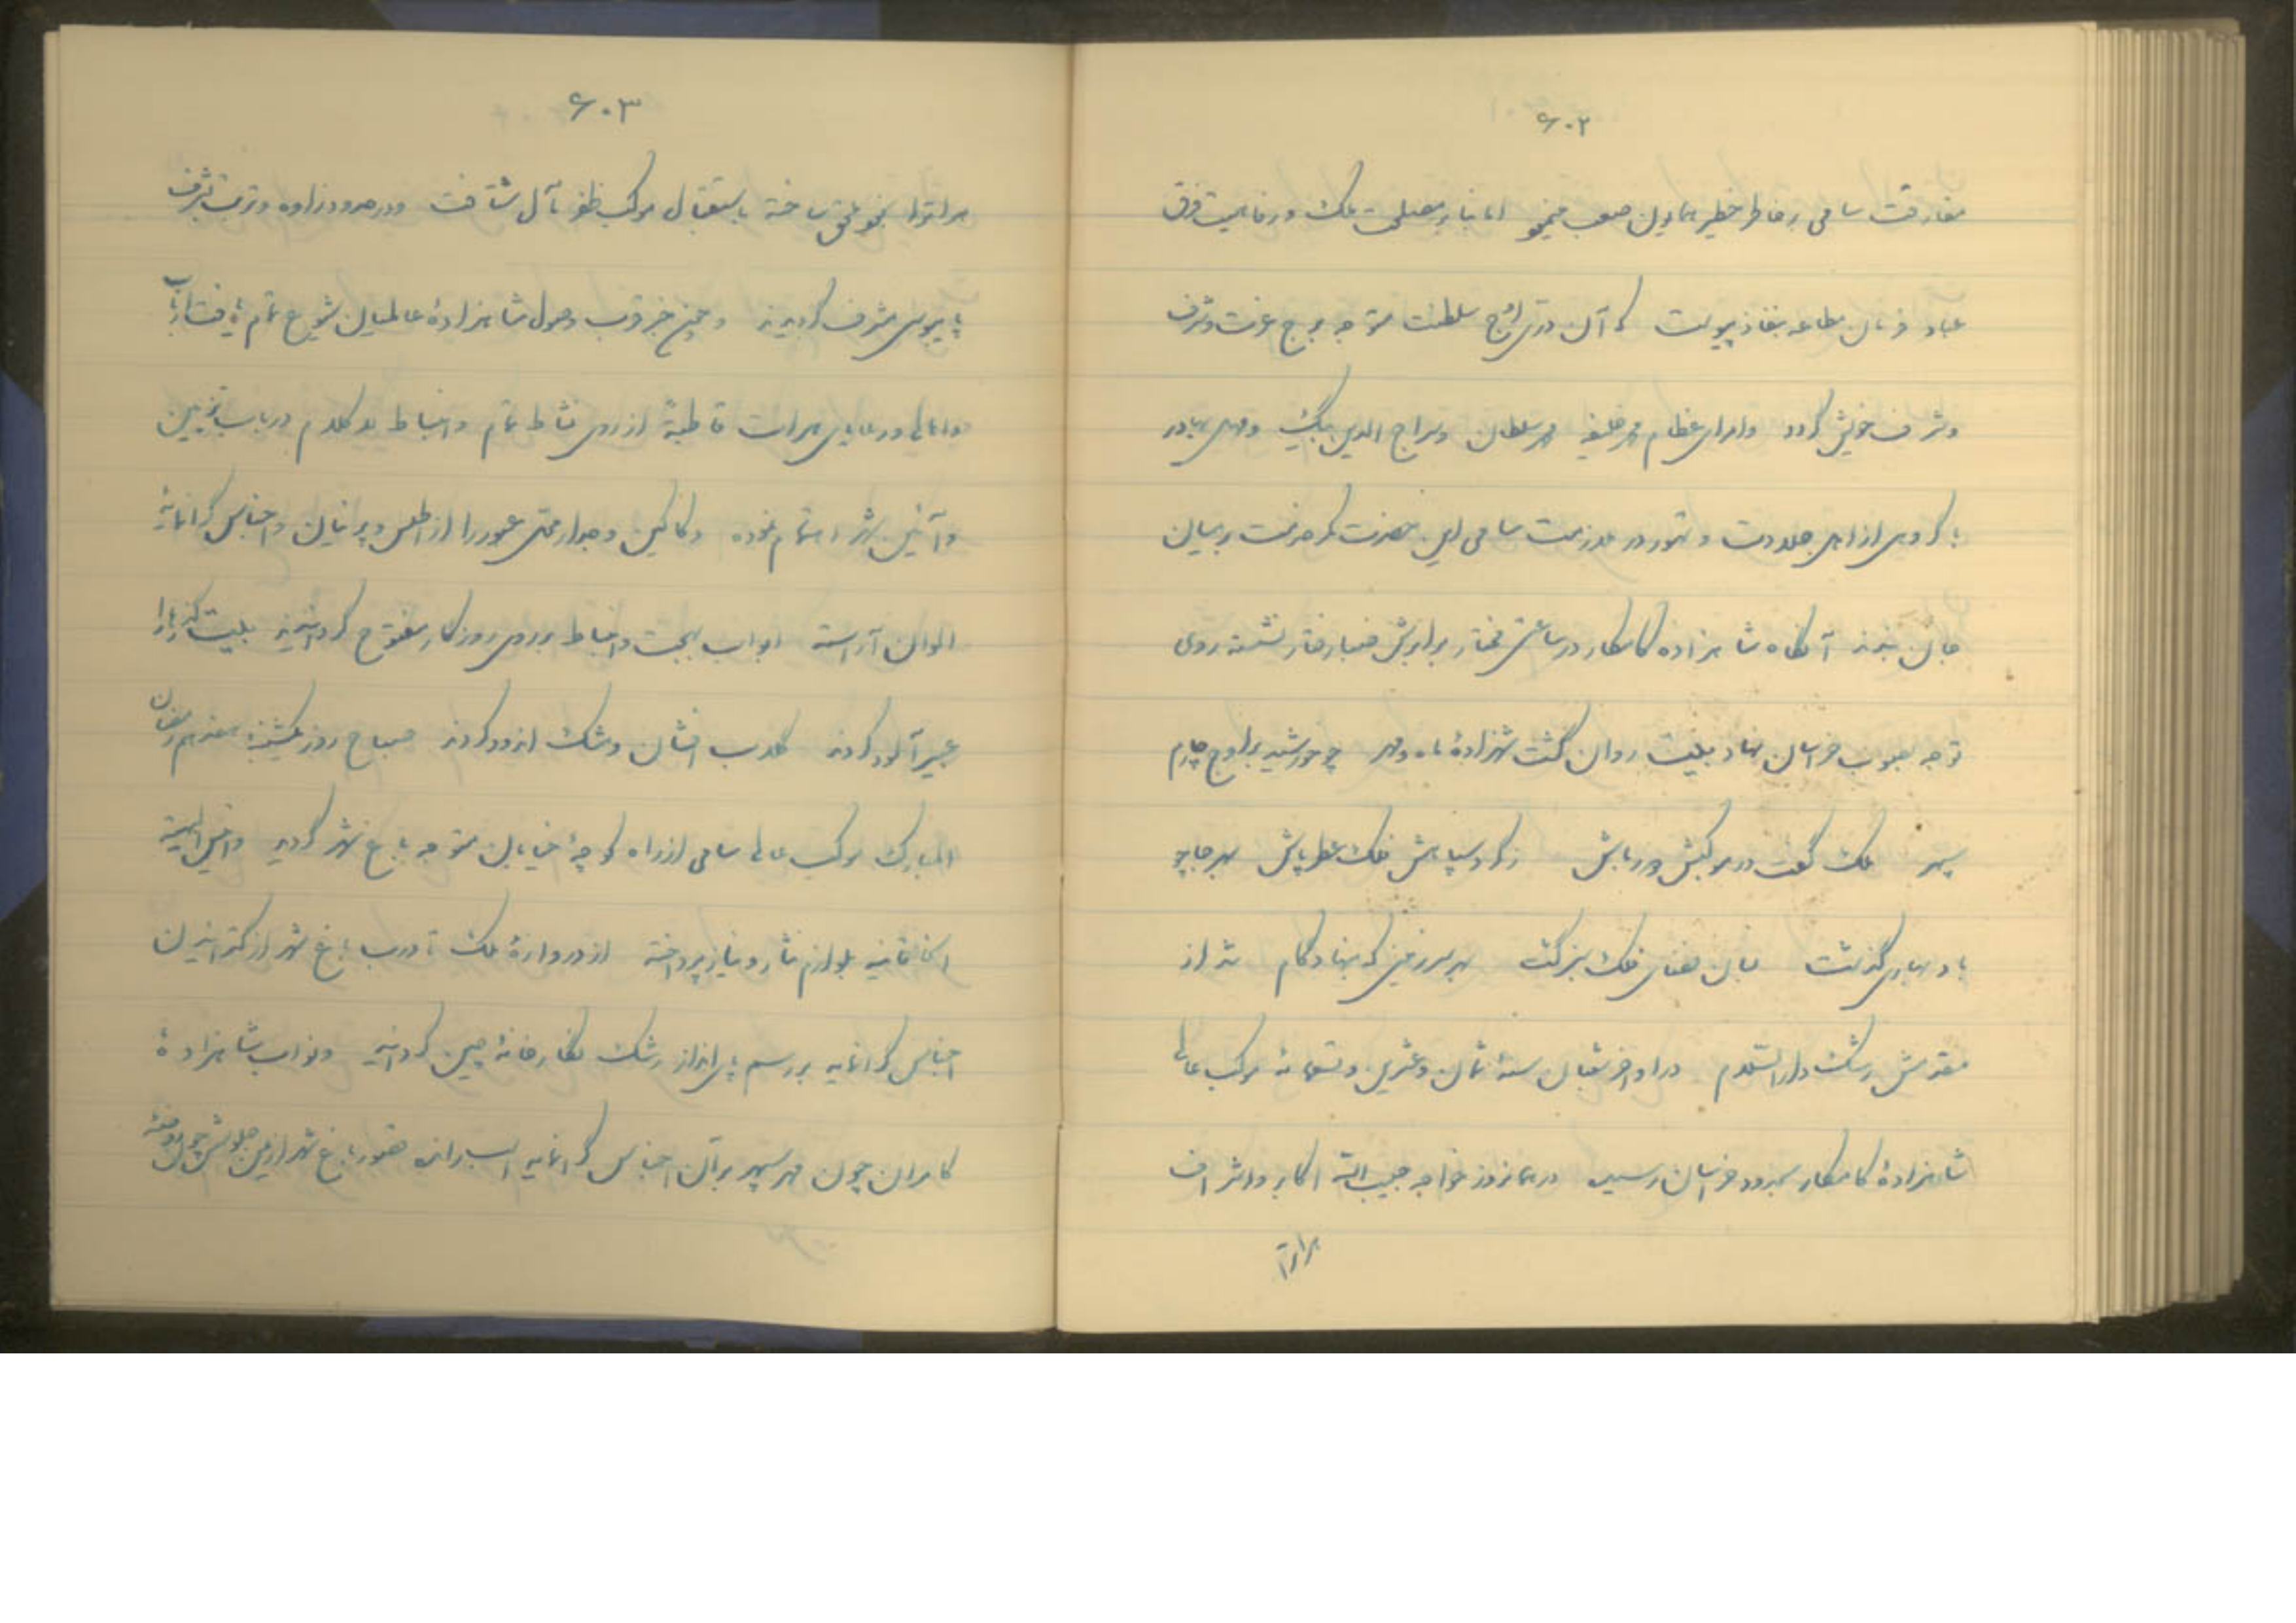 ۶۰۲
مفارقت سامی بر خاطر خطیر همایون صعب مینمود اما بنابر مصلحت ملک و رفاهیت فرق
عباد فرمان مطاعه بنفاذ پیوست که آن دری اوج سلطنت متوجه برج عزت و شرف
و شرف خویش گردد و امرای عظام امیر خلیفه امیر سلطان و سراج الدین بیک و بهادر
با گروهی از اهل جلادت و تهور در ملازمت سامی این حضرت کمر خدمت بر میان
جان بندند آنگاه شاهزاده کامکار در ساعتی مختار بر ابرش صبا رفتار نشسته روی
توجه بصوب خراسان نهاد بیت روان گشت شهزادهٔ ماه و مهر چو خورشید بر اوج چارم
سپهر ملک گفت در موکبش دور باش ز گرد سپاهش فلک عطر پاش بهر جا چو
باد بهاری گذشت بسان فلک سبز گشت بهر سرزمینی که بنهاد گام شد از
مقدمش رشک دارالسلام در اواخر شعبان سنهٔ ثمان و عشرین و تسعمائه موکب عالی
شاهزادهٔ کامکار بحدود خراسان رسید در همانروز خواجه حبیب الله اکابر و اشراف
هراترا
۶۰۳
هراترا بخود ملحق ساخته باستقبال موکب ظفر مآل شتافت و در حدود زاوه و تربت بشرف
پایبوس مشرف گردیدند و چون خبر قرب وصول شاهزادهٔ عالمیان شیوع تمام یافت ارباب
و اهالی و رعایای هرات قاطبةً از روی نشاط تمام و انبساط لاکلام در باب تزیین
و آیین شهر اهتمام نموده دکاکین و جدار محل عبور را از اطلس و پرنیان و اجناس گرانمایهٔ
الوان آراسته ابواب بهجت و انبساط بر روی روزگار مفتوح گردانیدند بیت گذرها را
عبیر آلود کردند گلاب افشان و مشک اندود کردند صباح روز یکشنبه هفدهم رمضان
المبارک موکب عالی سامی از راه کوچهٔ خیابان متوجه باغ شهر گردید و
بلوازم نثار و نیاز پرداخته از دروازهٔ ملک تا درب باغ شهر از گسترانیدن
اجناس گرانمایه بر رسم پای انداز رشک نگارخانهٔ چین گردانید و نواب شاهزادهٔ
کامران چون مهر سپهر بر آن اجناس گرانمایه اسب رانده باغ شهر از یمن جلوسش چون روضهٔ